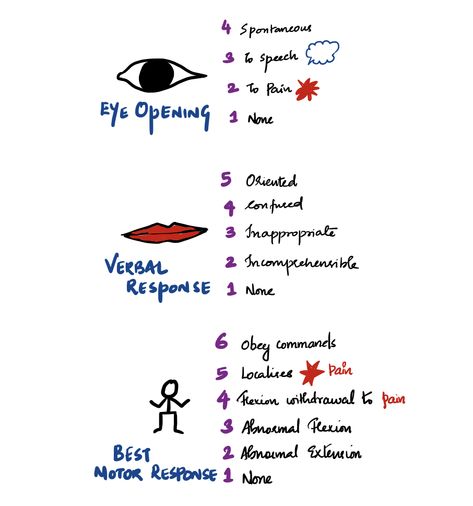 4 Spontaneous
3 To speech
2 To Pain
EYE OPENING
1 None
5 Oriented
4 confused
3 Inappropriate
2 Incomprehensible
VERBAL
RESPONSE
1 None
6 Obey commands
5 Localises Pain
4 Flexion withdrawal to pain
3 Abnormal Flexion
2 Abnormal Extension
BEST
MOTOR RESPONSE
1 None